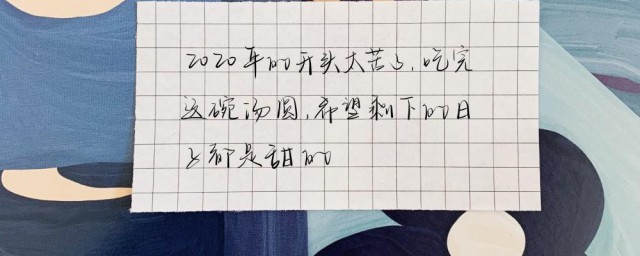 2020年的开头太苦了，吃完
这碗汤圆，希望剩下的日
子都是甜的